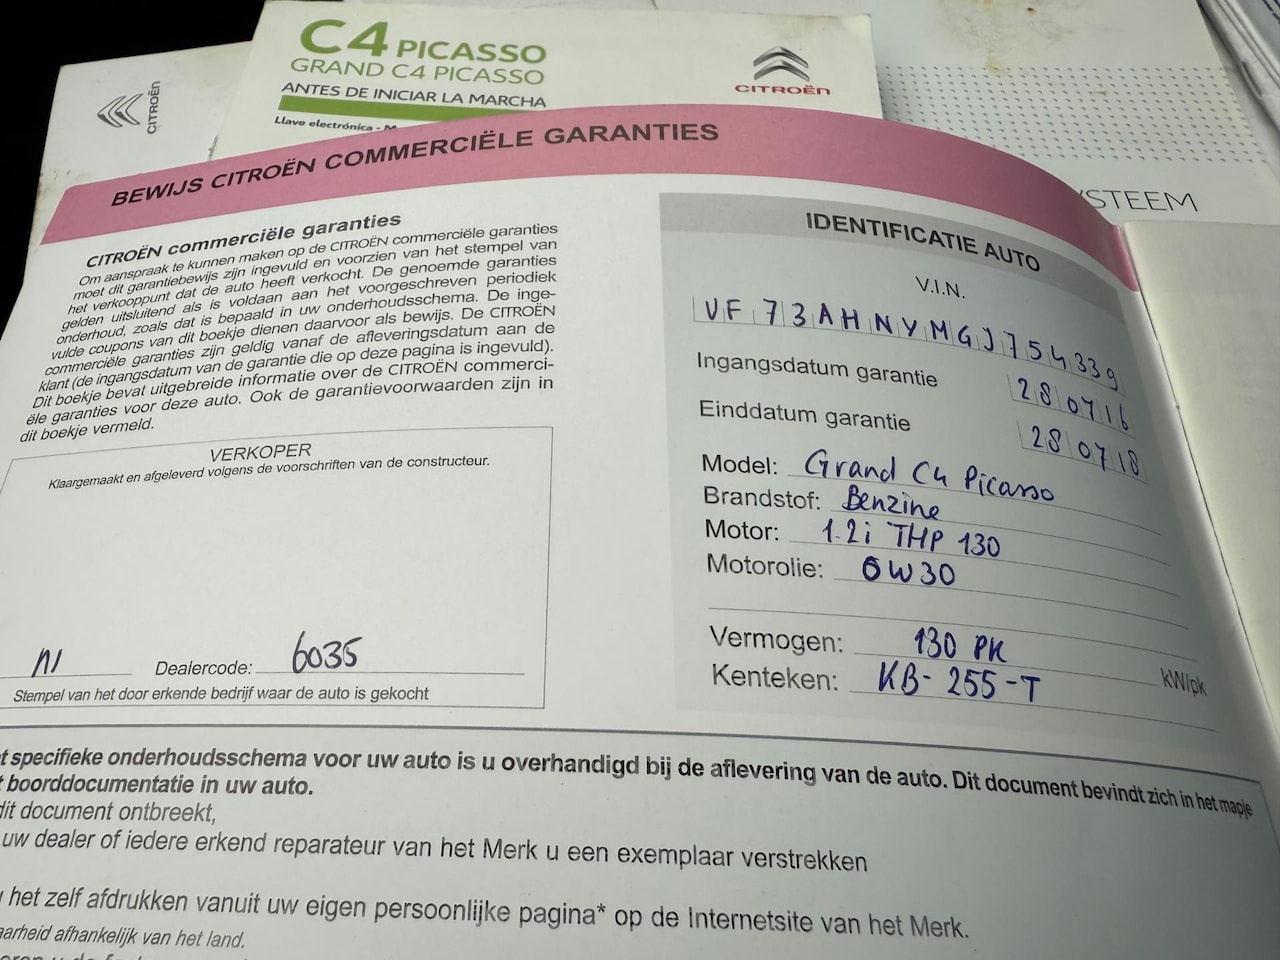 C4 PICASSO
GRAND C4 PICASSO
ANTES DE INICIAR LA MARCHA
Llave electrónica -
CITROËN
CITROËN
YSTEEM
BEWIJS CITROËN COMMERCIËLE GARANTIES
CITROËN commerciële garanties
Om aanspraak te kunnen maken op de CITROËN commerciële garanties
moet dit garantiebewijs zijn ingevuld en voorzien van het stempel van
het verkooppunt dat de auto heeft verkocht. De genoemde garanties
gelden uitsluitend als is voldaan aan het voorgeschreven periodiek
onderhoud, zoals dat is bepaald in uw onderhoudsschema. De inge-
vulde coupons van dit boekje dienen daarvoor als bewijs. De CITROËN
commerciële garanties zijn geldig vanaf de afleveringsdatum aan de
klant (de ingangsdatum van de garantie die op deze pagina is ingevuld).
Dit boekje bevat uitgebreide informatie over de CITROËN commerci-
ële garanties voor deze auto. Ook de garantievoorwaarden zijn in
dit boekje vermeld.
VERKOPER
Klaargemaakt en afgeleverd volgens de voorschriften van de constructeur.
Dealercode: 6035
Stempel van het door erkende bedrijf waar de auto is gekocht
IDENTIFICATIE AUTO
V.I.N.
VF73AHNYMGJ754339
Ingangsdatum garantie 28 07 16
Einddatum garantie 28 07 18
Model: Grand C4 Picasso
Brandstof: Benzine
Motor: 1.2i THP 130
Motorolie: 0W30
Vermogen: 130 PK kW/pk
Kenteken: KB-255-T
t specifieke onderhoudsschema voor uw auto is u overhandigd bij de aflevering van de auto. Dit document bevindt zich in het mapje
t boorddocumentatie in uw auto.
dit document ontbreekt,
uw dealer of iedere erkend reparateur van het Merk u een exemplaar verstrekken
u het zelf afdrukken vanuit uw eigen persoonlijke pagina* op de Internetsite van het Merk.
aarheid afhankelijk van het land.